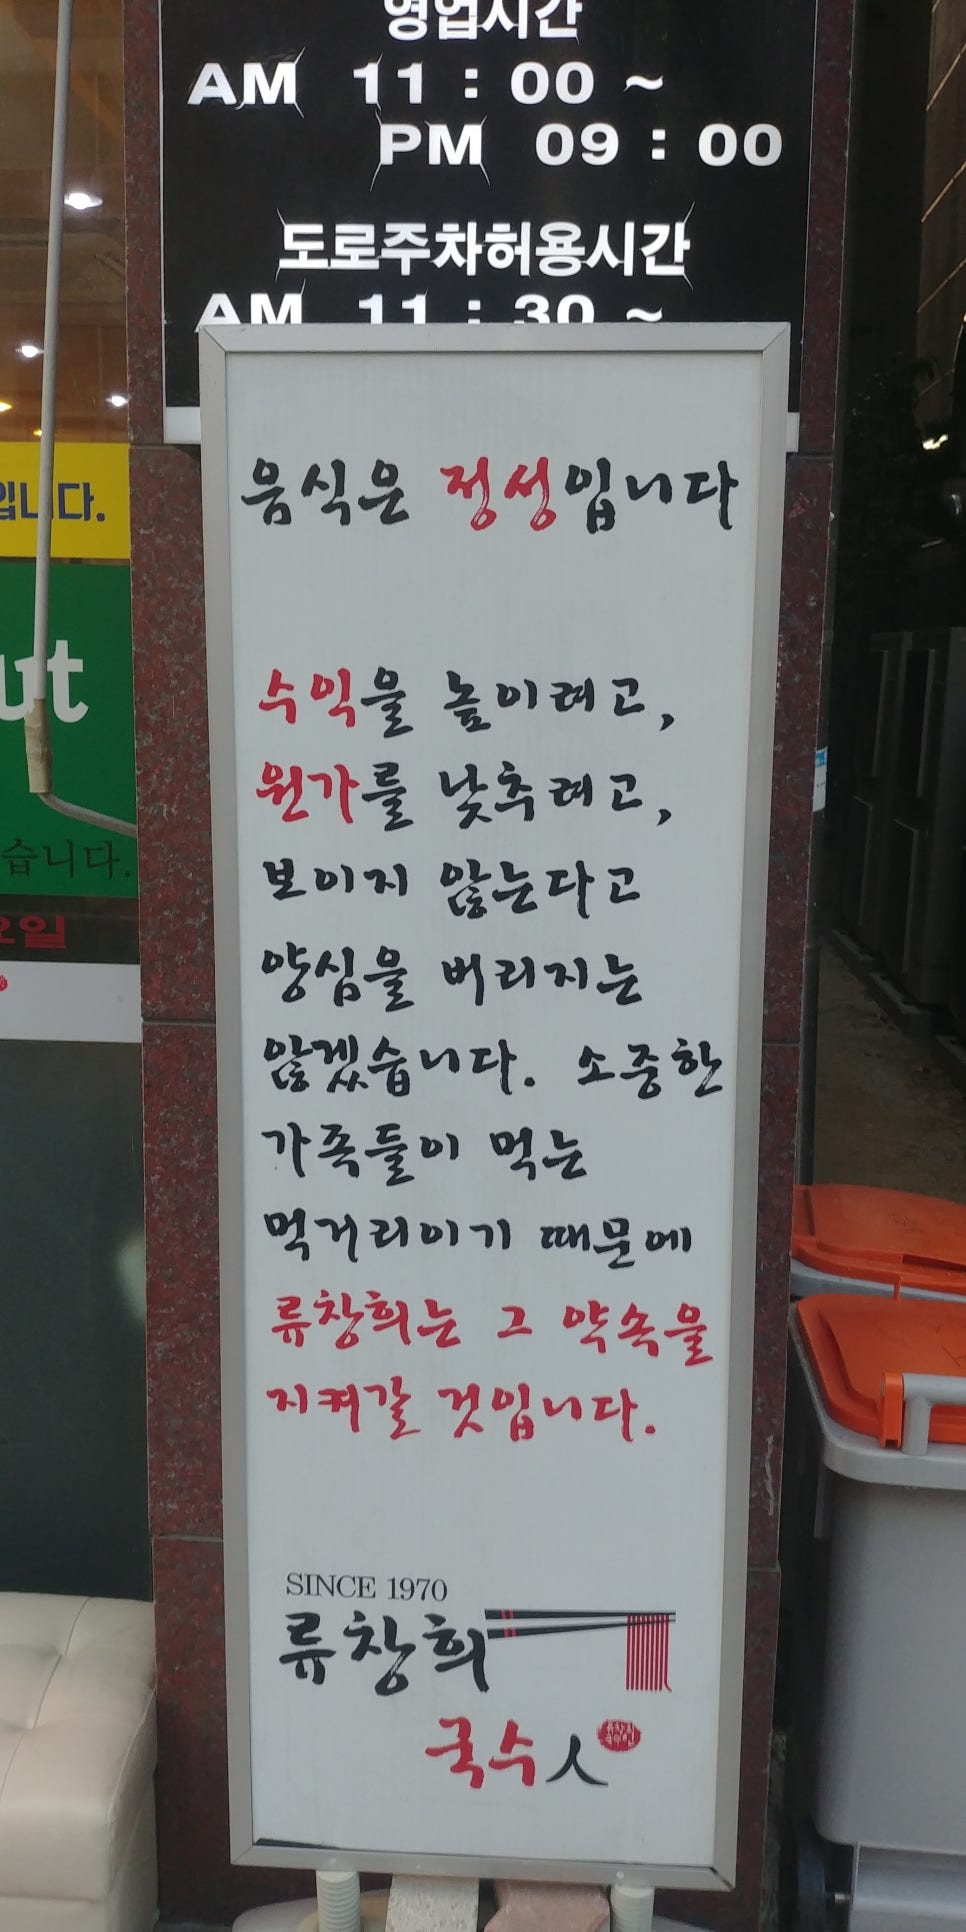 영업시간
AM 11 : 00 ~
PM 09 : 00
도로주차허용시간
AM 11 : 30 ~
음식은 정성입니다
수익을 높이려고,
원가를 낮추려고,
보이지 않는다고
양심을 버리지는
않겠습니다. 소중한
가족들이 먹는
먹거리이기 때문에
류창희는 그 약속을
지켜갈 것입니다.
SINCE 1970
류창희
국수人
입니다.
ut
습니다.
요일